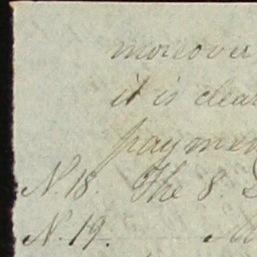 moreover
it is clear
paymen
N. 18. The 8.
N. 19.